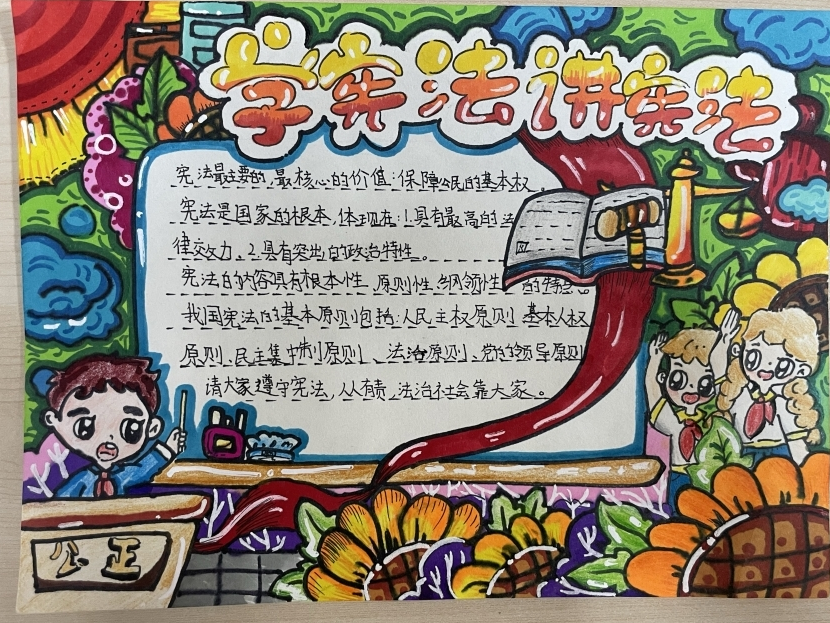 学宪法讲宪法
宪法最主要的,最核心的价值:保障公民的基本权。
宪法是国家的根本,体现在:1.具有最高的法
律效力。2.具有突出的政治特性。
宪法的内容具有根本性、原则性、纲领性的特点。
我国宪法的基本原则包括:人民主权原则 基本人权
原则、民主集中制原则、法治原则、党的领导原则
请大家遵守宪法,人人有责,法治社会靠大家。
公正